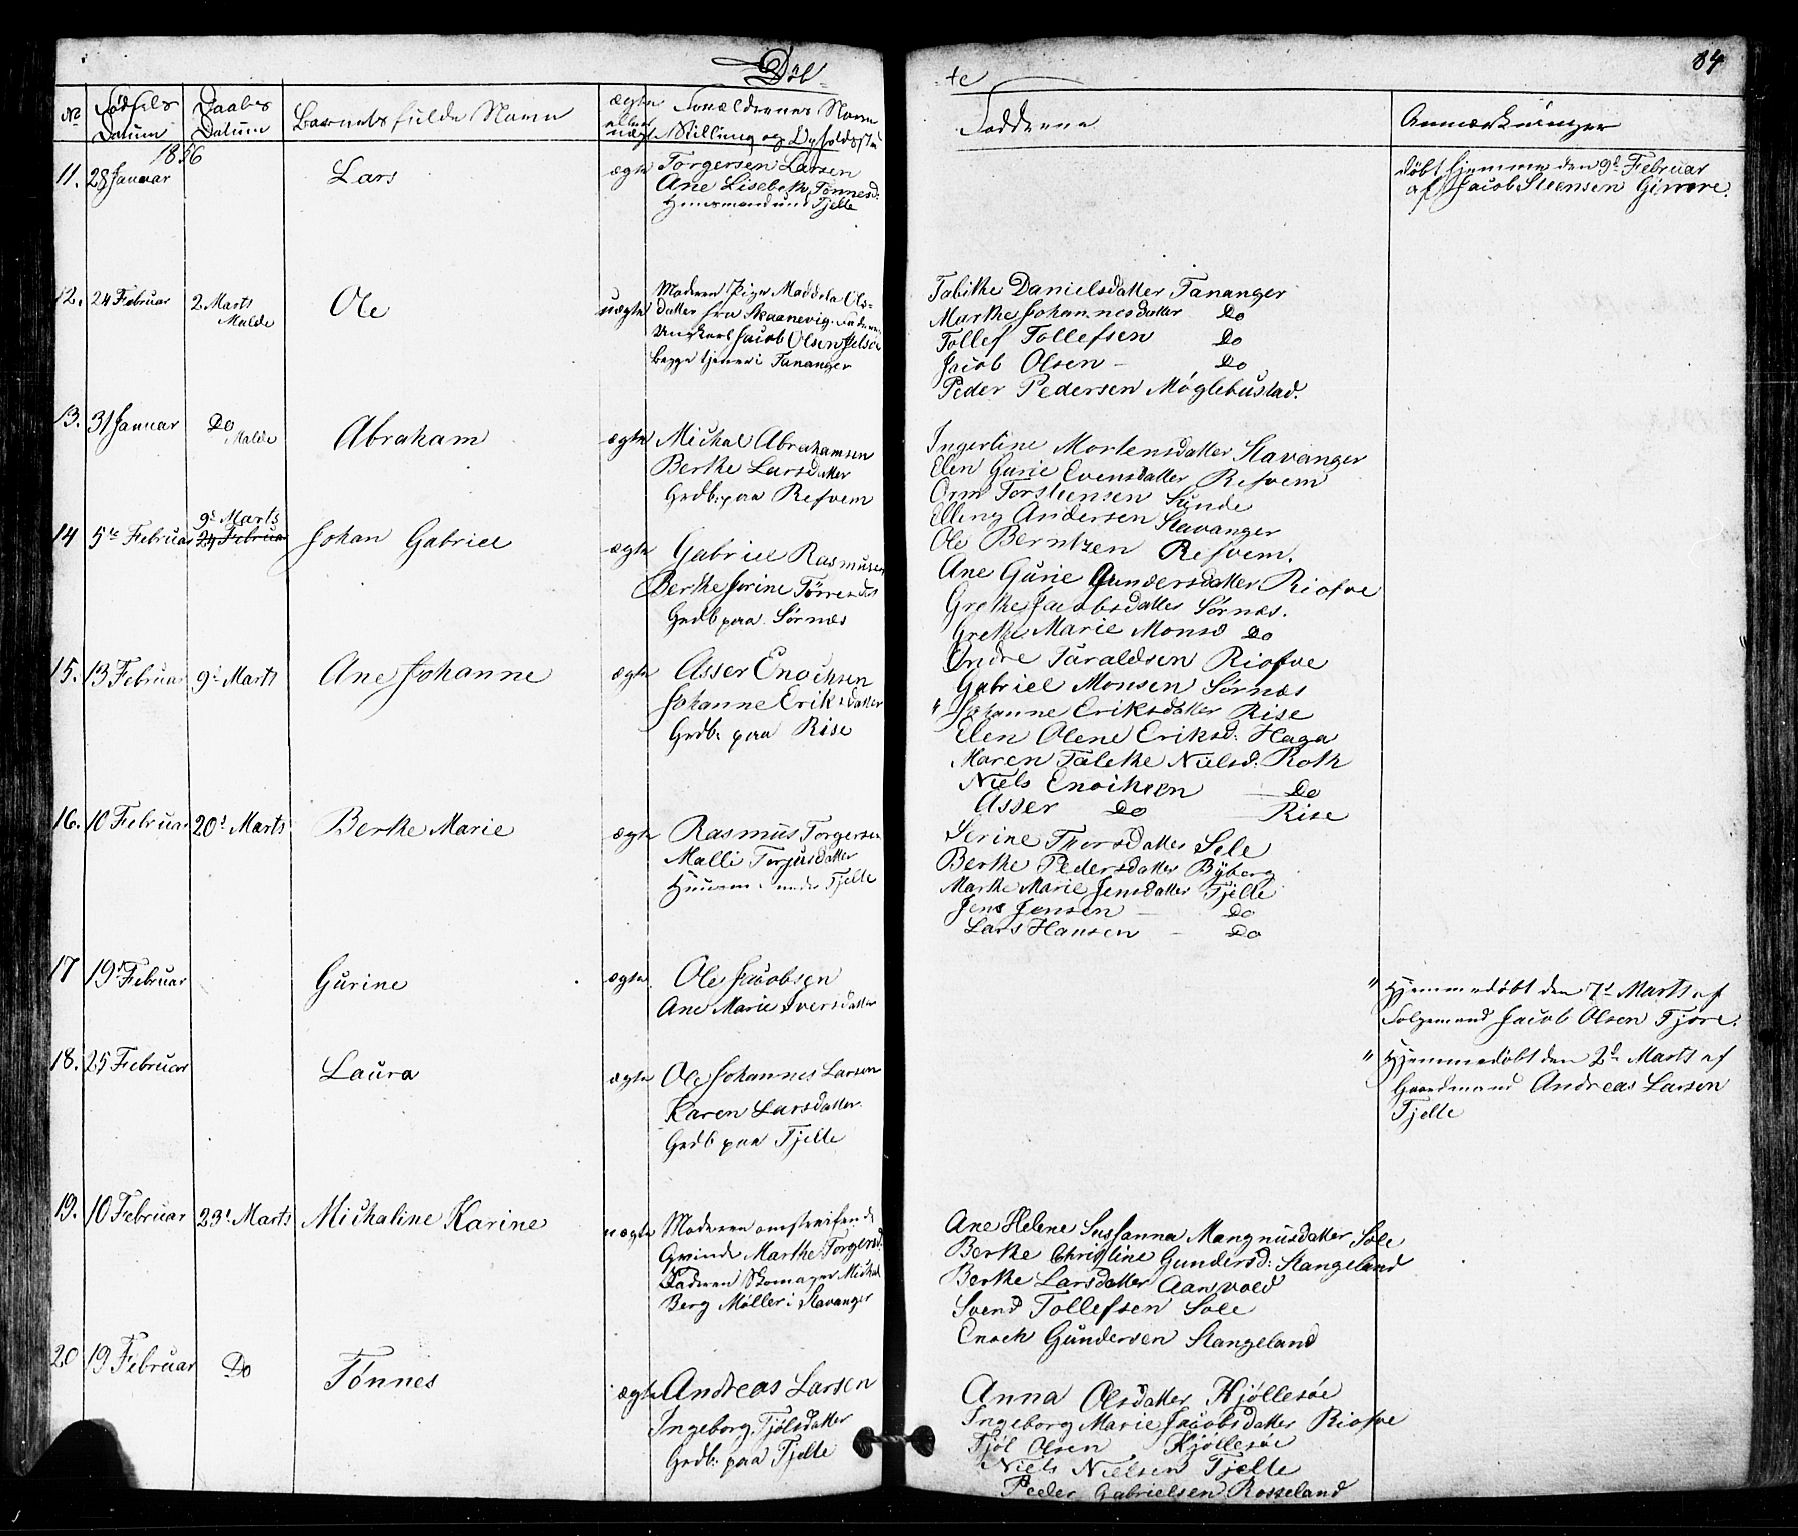 Döb
te
84
No
Fødsels Datum
Daabs Datum
Barnets fulde Navn
ægte eller uægte
Forældrenes Navn Stilling og Opholdssted
Fadderne
Anmærkninger
1856
11. 28 Januar Lars ægte Torgersen Larsen
Ane Lisebeth Tønnesd:
Huusmand und Tjelte
døbt hjemme den 9d Februar
af Jacob Steensen
12. 24 Februar 2 Marts Malde Ole uægte
Moderen Pige Ols-
datter fra Skaanevig. Faderen
Ungkarl Jacob Olsen
begge tjener i Tananger
Tabithe Danielsdatter Tananger
Marthe Johannesdatter Do
Tollef Tollefsen Do
Jacob Olsen - Do
Peder Pedersen Møglebustad.
13. 31 Januar Do Malde Abraham ægte
Michal Abrahamsen
Berthe Larsdatter
Grdb: paa Refvem
Ingertine Mortensdatter Stavanger
Elen Gurie Evensdatter Refvem
Orm Torsteensen Sunde
Elling Andersen Stavanger
Ole Berntzen Refvem.
14 5te Februar 9d Marts 24 Februar Johan Gabriel ægte
Gabriel Rasmusen
Berthe Serine Tørresdat
Grdb paa Sørnæs
Ane Gurie Gundersdatter Riofve
Grethe Jacobsdatter Sørnæs.
Grethe Marie Monsd Do
Endre Taraldsen Riofve
Gabriel Monsen Sørnæs
15. 13 Februar 9d Marts Ane Johanne ægte
Asser Enochsen
Johanne Eriksdatter
Grdb: paa Rise
" Johanne Eriksdatter Rise
Elen Olene Eriksd: Haga
Maren Talethe Nielsd: Roth
Niels Enochsen Do
Asser Do Rise
16. 10 Februar 20d Marts Berthe Marie ægte
Rasmus Torgersen
Malli Torjusdatter
Huusm: under Tjelte
Serine Thorsdatter Sele
Berthe Pedersdatter Byberg
Marthe Marie Jensdatter Tjelte
Jens Jensen - Do
Lars Hansen - Do
17 19d Februar Gurine ægte
Ole Jacobsen
Ane Marie Iversdatter
" Hjemmedøbt den 7d Marts af
Jacob Olsen Tjore.
18. 25 Februar Laura ægte
Ole Johannes Larsen
Karen Larsdatter
Grdb paa Tjelte
" Hjemmedøbt den 2d Marts af
Gaardmand Andreas Larsen
Tjelte
19. 10 Februar 23d Marts Michaline Karine uægte
Moderen omstreifende
Qvinde Marthe Torgersd:
Faderen Skomager Michal
Berg Møller i Stavanger
Ane Helene Sussanna Mangnusdatter Sole
Berthe Christine Gundersd: Stangeland
Berthe Larsdatter Aanvold
Svend Tollefsen Sole
Enoch Gundersen Stangeland
20 19 Februar Do Tønnes ægte
Andreas Larsen
Ingeborg Tjølsdatter
Grdb: paa Tjelte
Anna Olsdatter Kjøllesøe
Ingeborg Marie Jacobsdatter Riofve
Tjøl Olsen Kjøllesøe
Niels Nielsen Tjelte
Peder Gabrielsen Rosseland